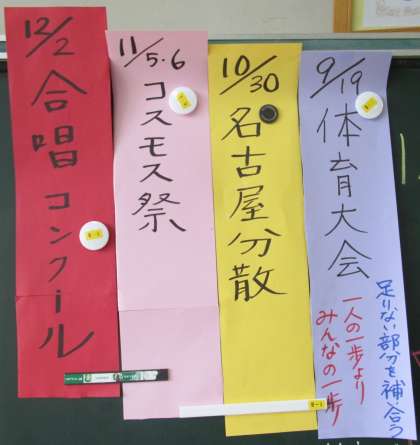 9/19 体育大会
足りない部分を補い合う
一人の一歩より
みんなの一歩
10/30 名古屋分散
11/5・6 コスモス祭
12/2 合唱コンクール